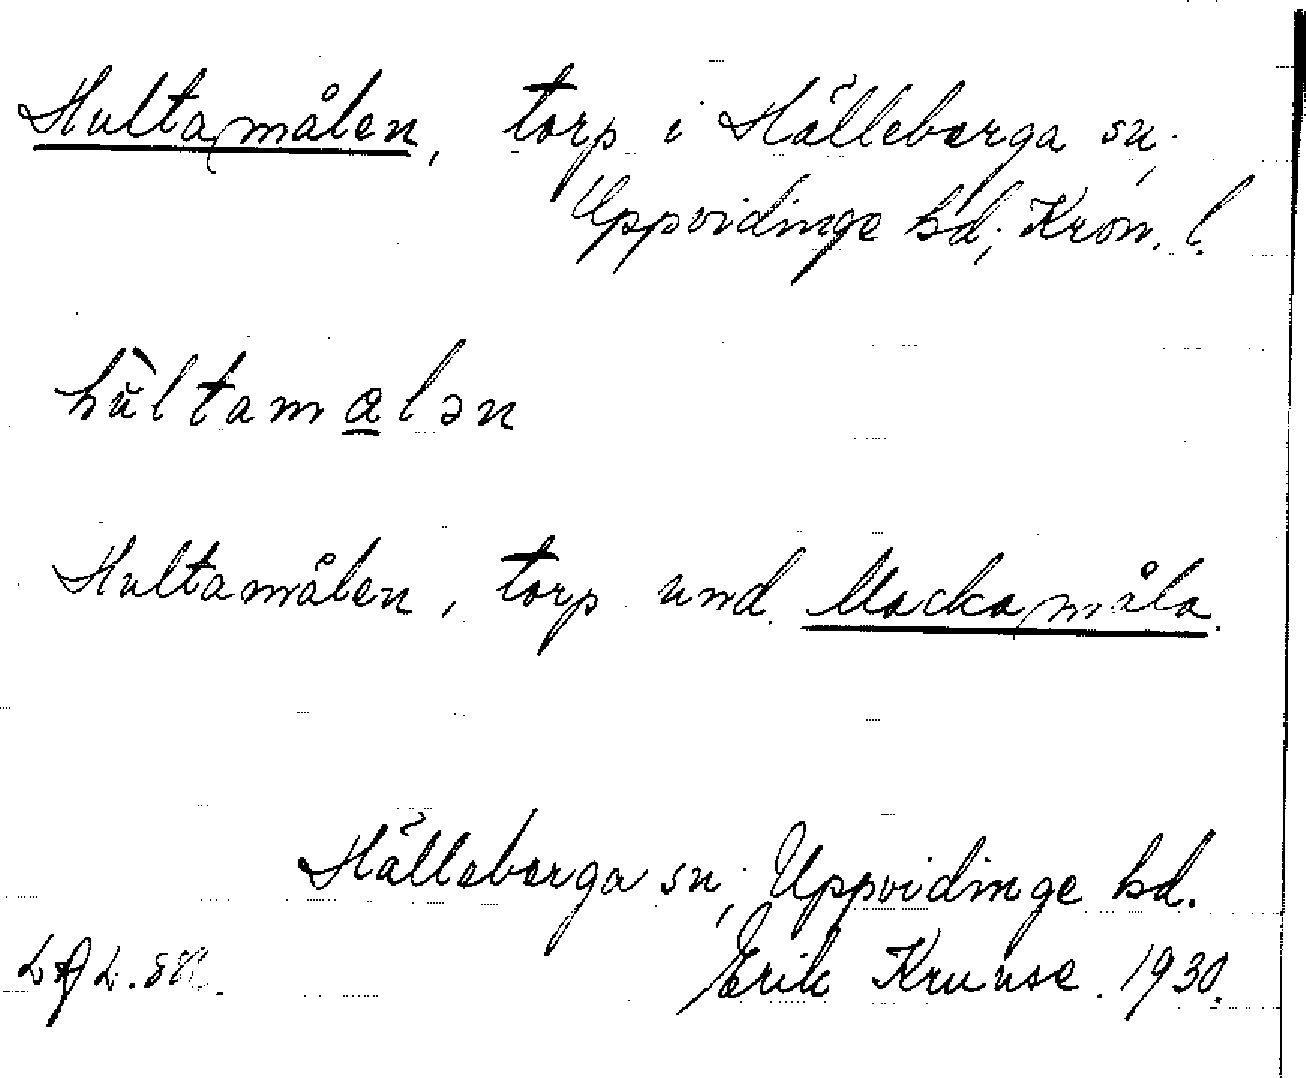 Hultamålen, torp i Hälleberga sn;
Uppvidinge hd; Kron. l.
hùltamalən
Hultamålen, torp und. Mackamåla.
Hälleberga sn; Uppvidinge hd.
Erik Kruuse. 1930.